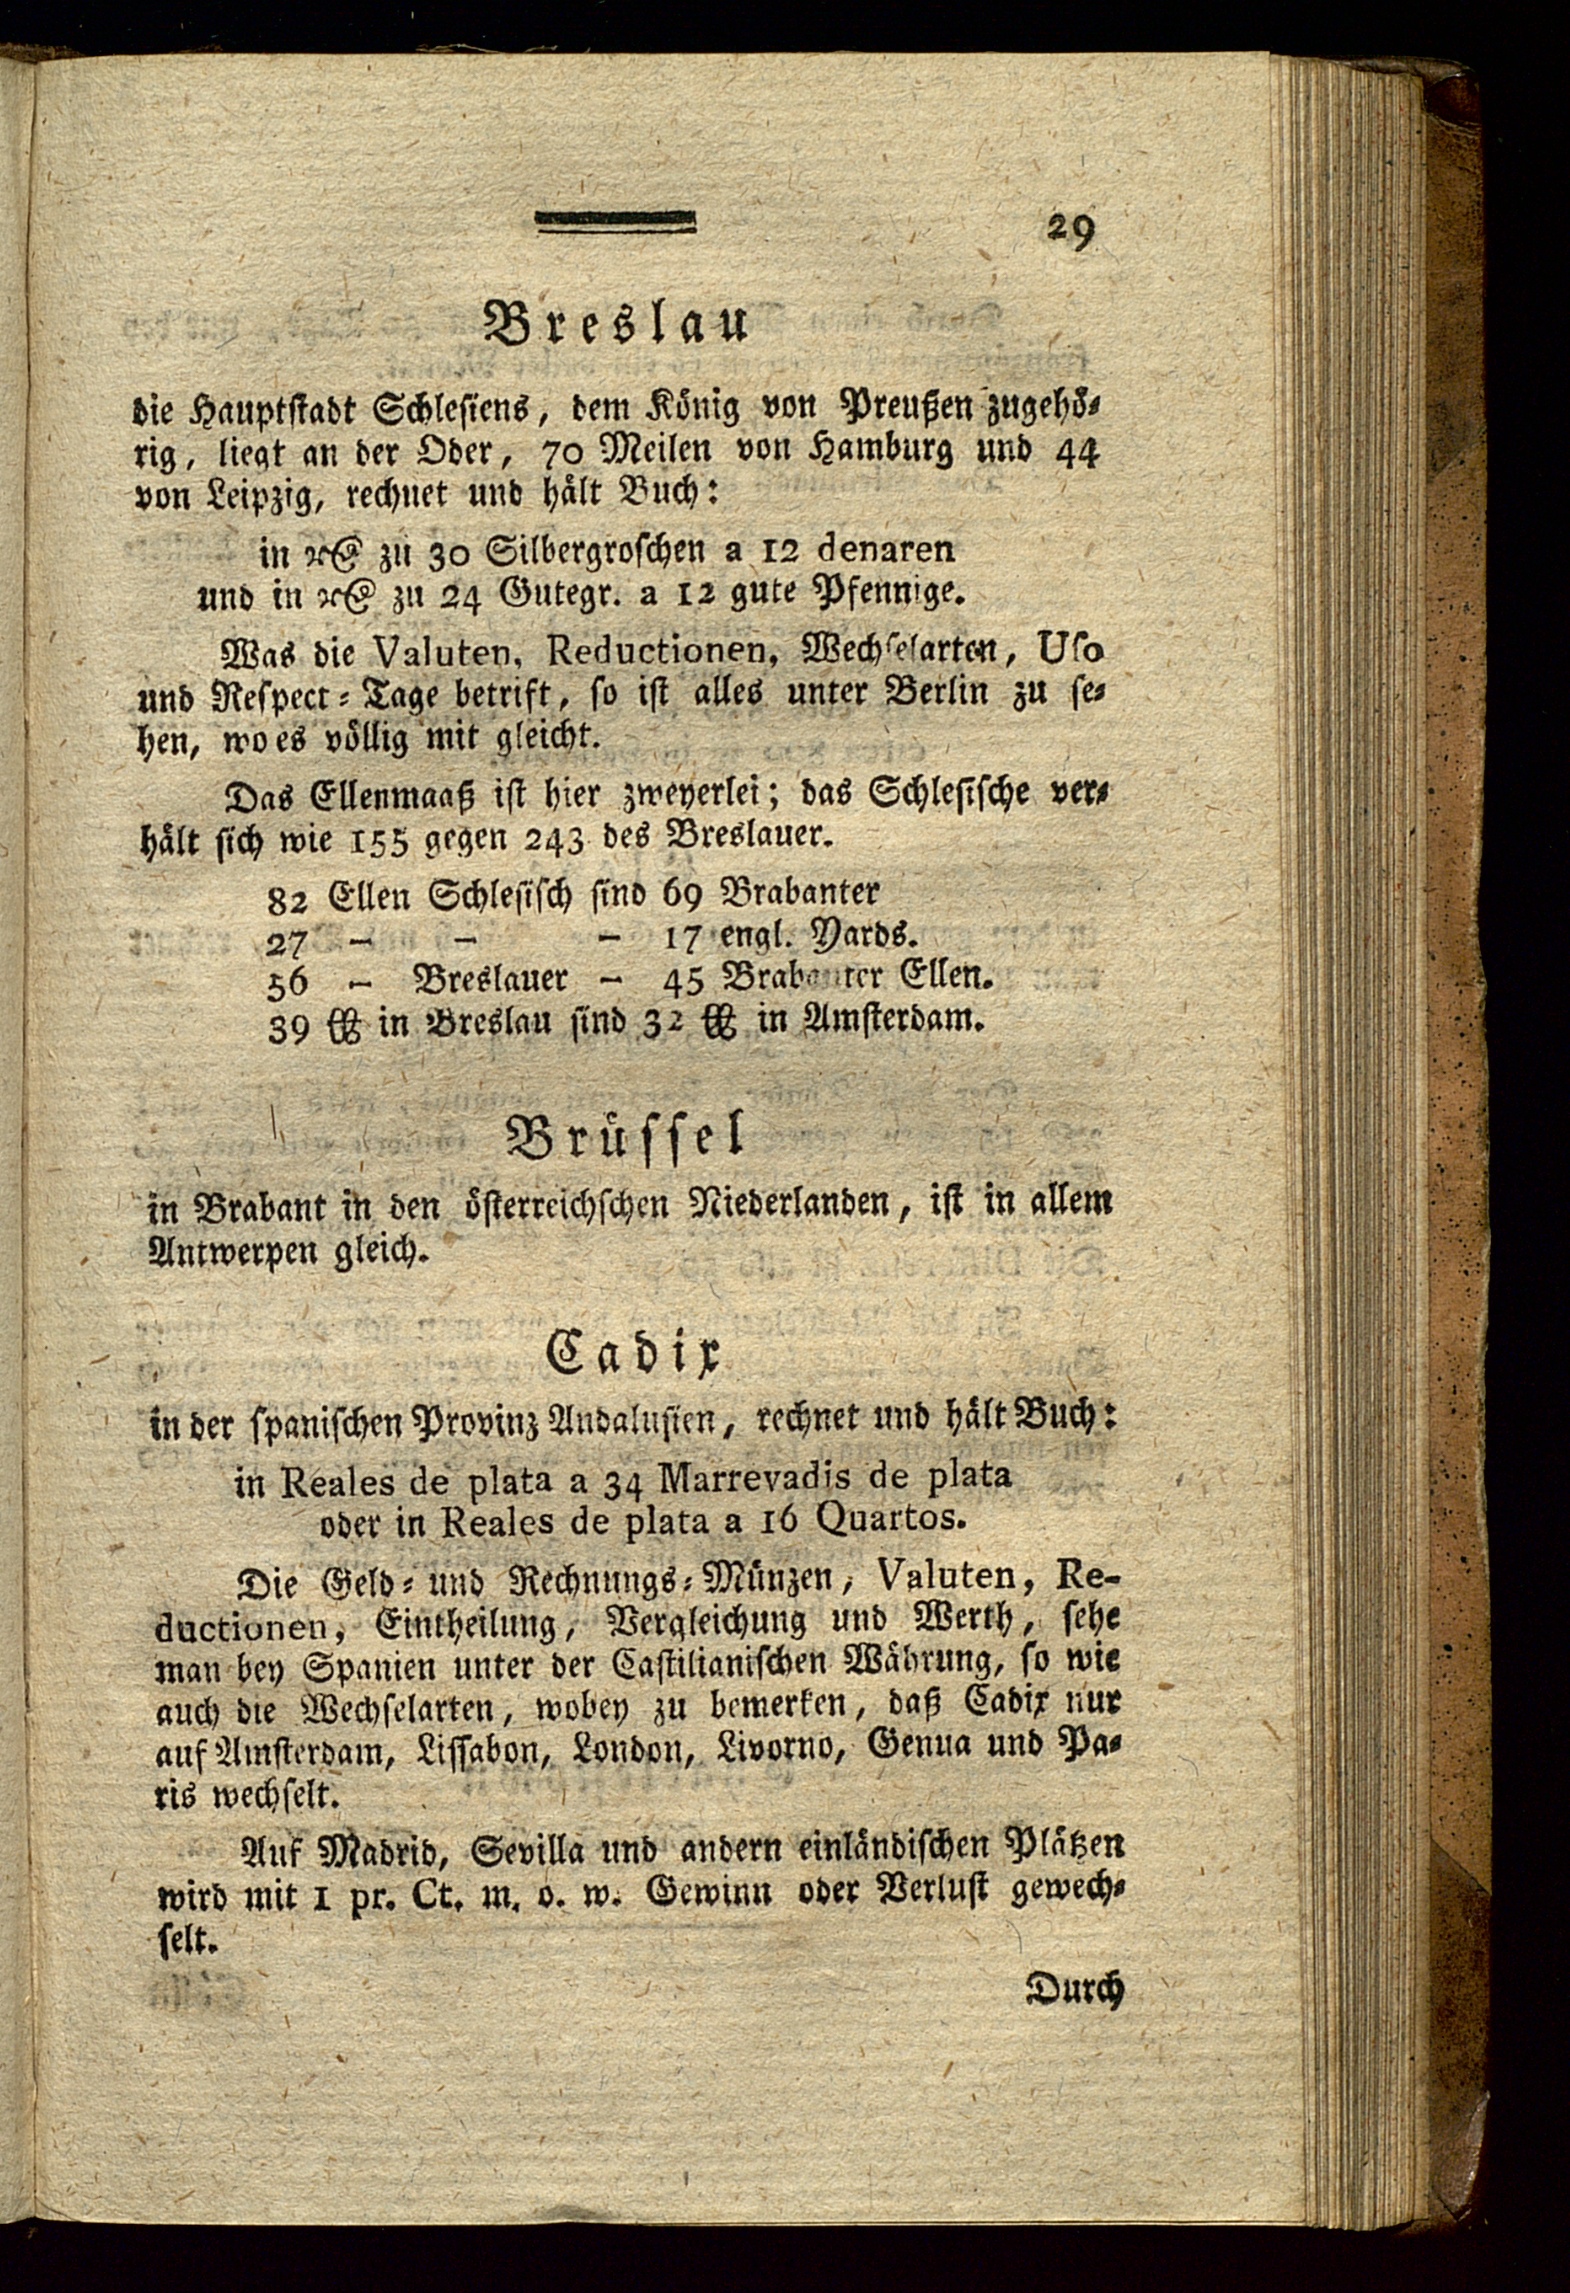 29
Breslau
die Hauptstadt Schlesiens, dem König von Preußen zugehö-
rig, liegt an der Oder, 70 Meilen von Hamburg und 44
von Leipzig, rechnet und hält Buch:
in rß zu 30 Silbergroschen a 12 denaren
und in rß zu 24 Gutegr. a 12 gute Pfennige.
Was die Valuten, Reductionen, Wechselarten, Uso
und Respect-Tage betrift, so ist alles unter Berlin zu se-
hen, wo es völlig mit gleicht.
Das Ellenmaaß ist hier zweyerlei; das Schlesische ver-
hält sich wie 155 gegen 243 des Breslauer.
82 Ellen Schlesisch sind 69 Brabanter
27 – – – 17 engl. Yards.
56 – Breslauer – 45 Brabanter Ellen.
39 ℔ in Breslau sind 32 ℔ in Amsterdam.
Brüssel
in Brabant in den österreichschen Niederlanden, ist in allem
Antwerpen gleich.
Cadix
in der spanischen Provinz Andalusien, rechnet und hält Buch:
in Reales de plata a 34 Marrevadis de plata
oder in Reales de plata a 16 Quartos.
Die Geld- und Rechnungs-Münzen, Valuten, Re-
ductionen, Eintheilung, Vergleichung und Werth, sehe
man bey Spanien unter der Castilianischen Währung, so wie
auch die Wechselarten, wobey zu bemerken, daß Cadix nur
auf Amsterdam, Lissabon, London, Livorno, Genua und Pa-
ris wechselt.
Auf Madrid, Sevilla und andern einländischen Plätzen
wird mit 1 pr. Ct. m. o. w. Gewinn oder Verlust gewech-
selt.
Durch